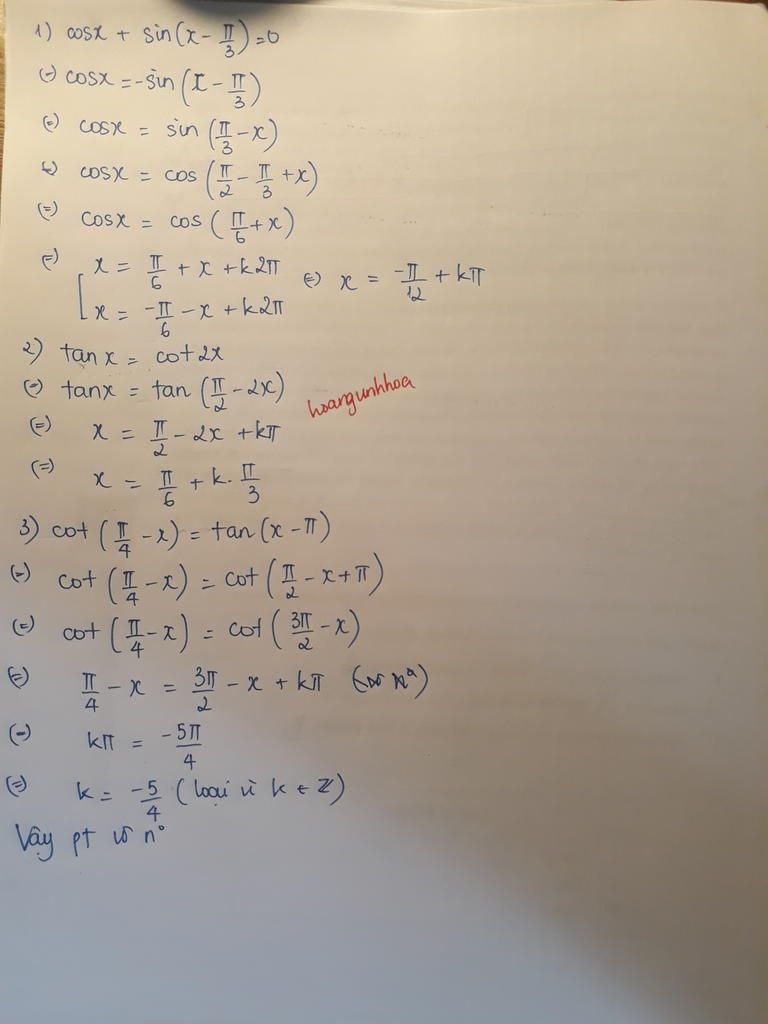 1) cosx + sin(x - π/3) = 0
(=) cosx = -sin(x - π/3)
(=) cosx = sin(π/3 - x)
(=) cosx = cos(π/2 - π/3 + x)
(=) cosx = cos(π/6 + x)
(=) [ x = π/6 + x + k2π
x = -π/6 - x + k2π
(=) x = -π/12 + kπ
2) tanx = cot2x
(=) tanx = tan(π/2 - 2x)
hoargunhhoa
(=) x = π/2 - 2x + kπ
(=) x = π/6 + k.π/3
3) cot(π/4 - x) = tan(x - π)
(=) cot(π/4 - x) = cot(π/2 - x + π)
(=) cot(π/4 - x) = cot(3π/2 - x)
(=) π/4 - x = 3π/2 - x + kπ
(=) kπ = -5π/4
(=) k = -5/4 (loại vì k ∈ Z)
Vậy pt vô n°